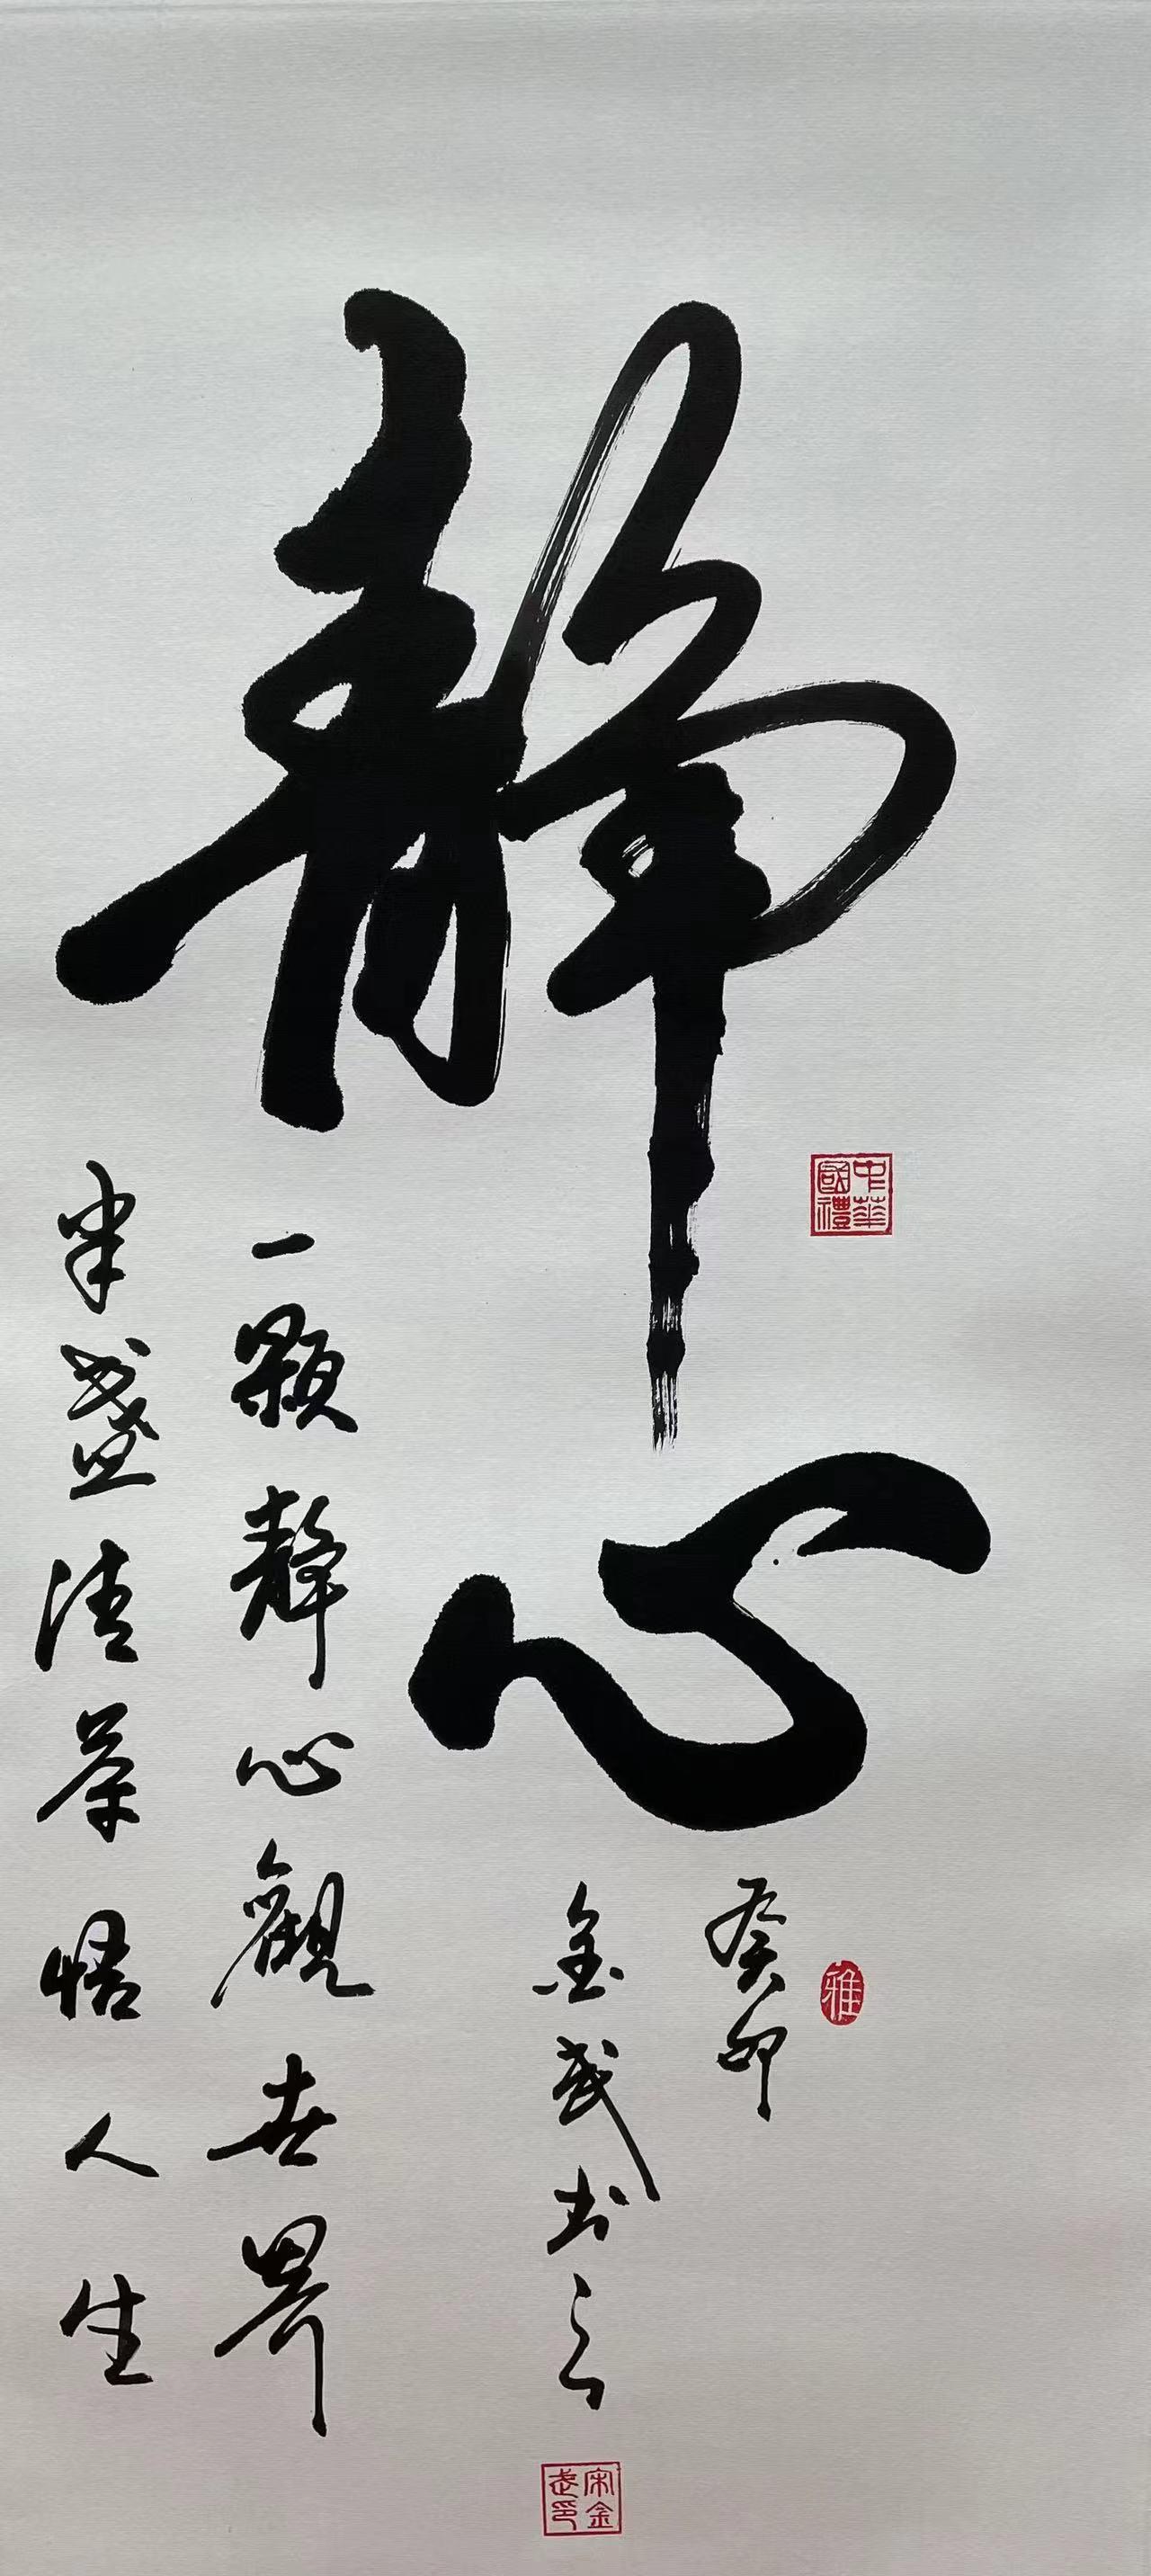 靜心
中華國禮
雅
癸卯
金武书之
宋金武印
一顆靜心觀世界
半盏清茶悟人生